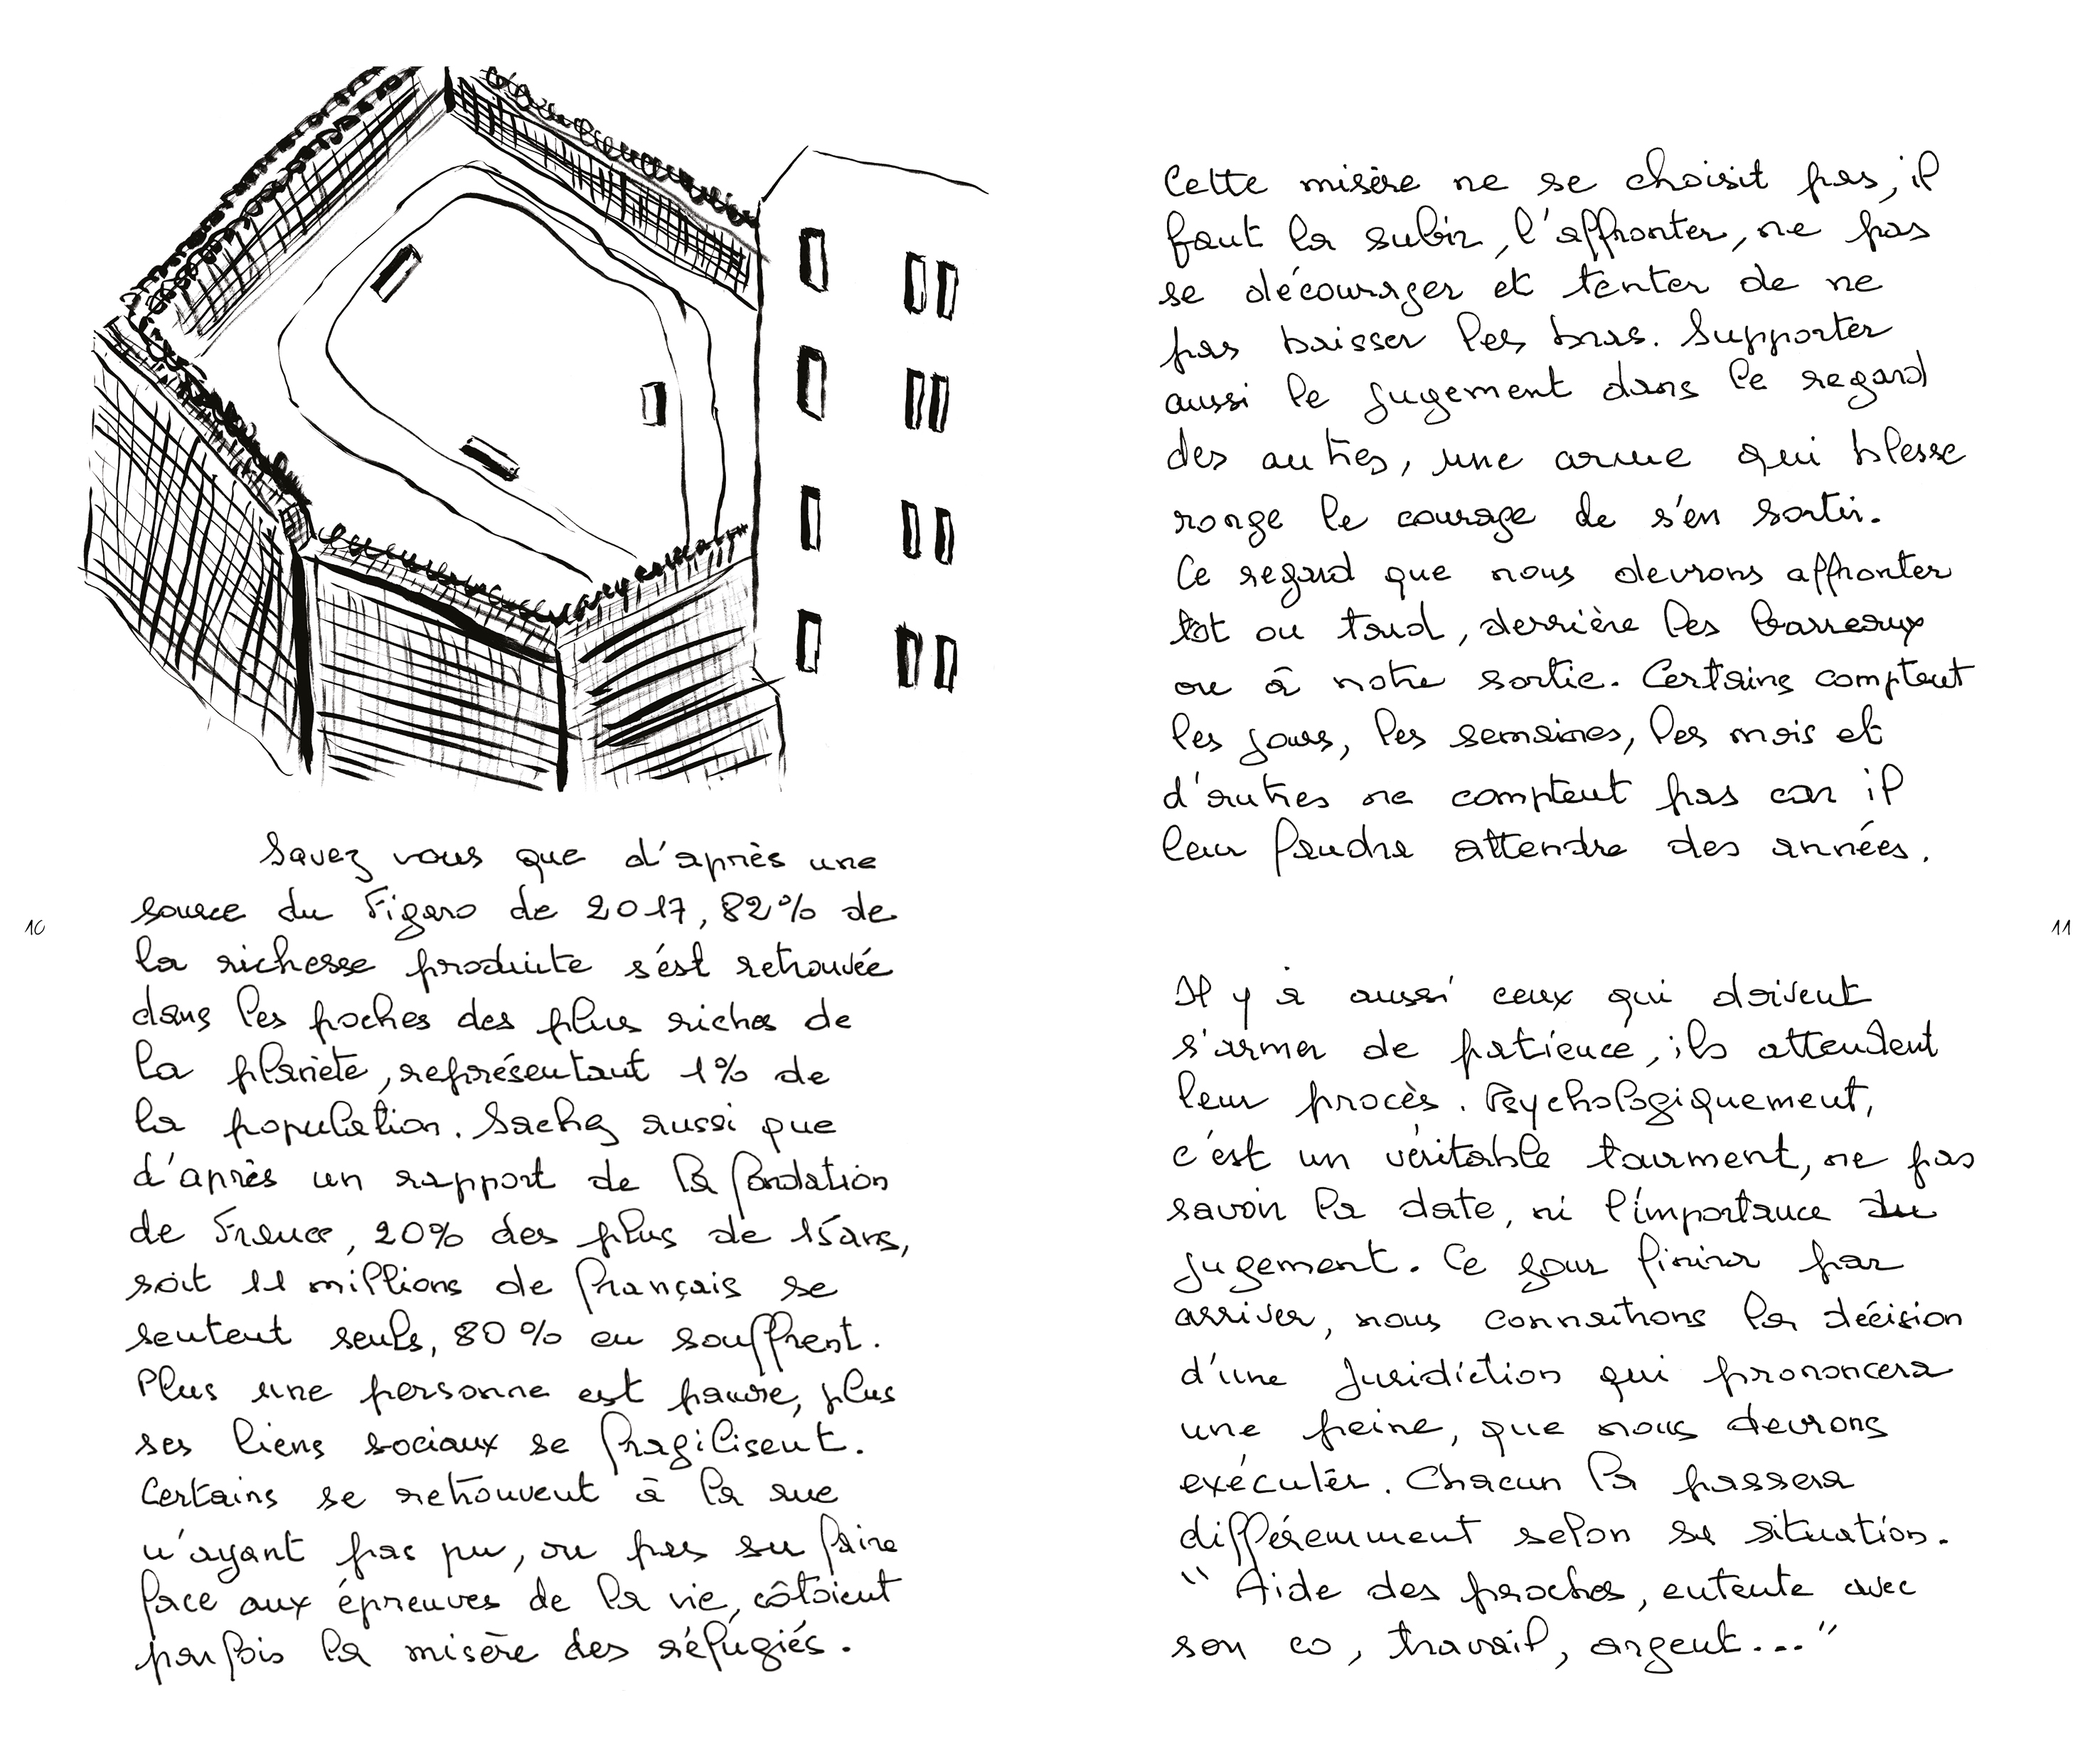 Savez vous que d'après une
source du Figaro de 2017, 82% de
la richesse produite s'est retrouvée
dans les poches des plus riches de
la planète, représentant 1% de
la population. Sachez aussi que
d'après un rapport de la fondation
de France, 20% des plus de 15 ans,
soit 11 millions de français se
sentent seuls, 80% en souffrent.
Plus une personne est pauvre, plus
ses liens sociaux se fragilisent.
Certains se retrouvent à la rue
n'ayant pas pu, ou pas su faire
face aux épreuves de la vie, côtoient
parfois la misère des réfugiés.
10
Cette misère ne se choisit pas, il
faut la subir, l'affronter, ne pas
se décourager et tenter de ne
pas baisser les bras. Supporter
aussi le jugement dans le regard
des autres, une arme qui blesse
ronge le courage de s'en sortir.
Ce regard que nous devrons affronter
tot ou tard, derrière les barreaux
ou à notre sortie. Certains comptent
les jours, les semaines, les mois et
d'autres ne comptent pas car il
leur faudra attendre des années.
Il y à aussi ceux qui doivent
s'armer de patience, ils attendent
leur procès. Psychologiquement,
c'est un véritable tourment, ne pas
savoir la date, ni l'importance du
jugement. Ce jour finira par
arriver, nous connaitrons la décision
d'une juridiction qui prononcera
une peine, que nous devrons
exécuter. Chacun la passera
différemment selon sa situation.
"Aide des proches, entente avec
son co, travail, argent..."
11